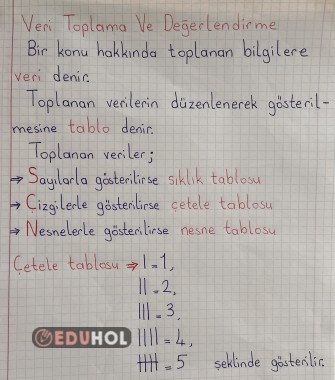 Veri Toplama Ve Değerlendirme
Bir konu hakkında toplanan bilgilere
veri denir.
Toplanan verilerin düzenlenerek gösteril-
mesine tablo denir.
Toplanan veriler;
⇒ Sayılarla gösterilirse sıklık tablosu
⇒ Çizgilerle gösterilirse çetele tablosu
⇒ Nesnelerle gösterilirse nesne tablosu
Çetele tablosu ⇒ I = 1,
II = 2,
III = 3,
EDUHOL
IIII = 4,
IIII = 5 şeklinde gösterilir.